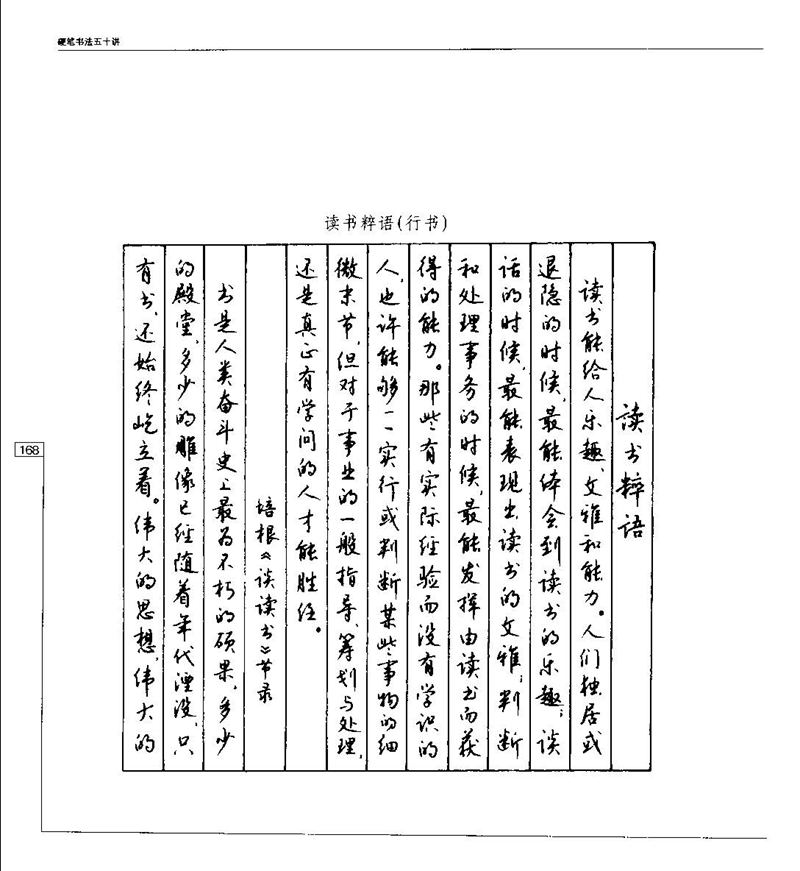 硬笔书法五十讲
读书粹语(行书)
读书粹语
读书能给人乐趣、文雅和能力。人们独居或
退隐的时候,最能体会到读书的乐趣;谈
话的时候,最能表现出读书的文雅;判断
和处理事务的时候,最能发挥由读书而获
得的能力。那些有实际经验而没有学识的
人,也许能够一一实行或判断某些事物的细
微末节,但对于事业的一般指导、筹划与处理,
还是真正有学问的人才能胜任。
培根《谈读书》节录
书是人类奋斗史上最为不朽的硕果,多少
的殿堂,多少的雕像已经随着年代湮没,只
有书,还始终屹立着。伟大的思想,伟大的
168